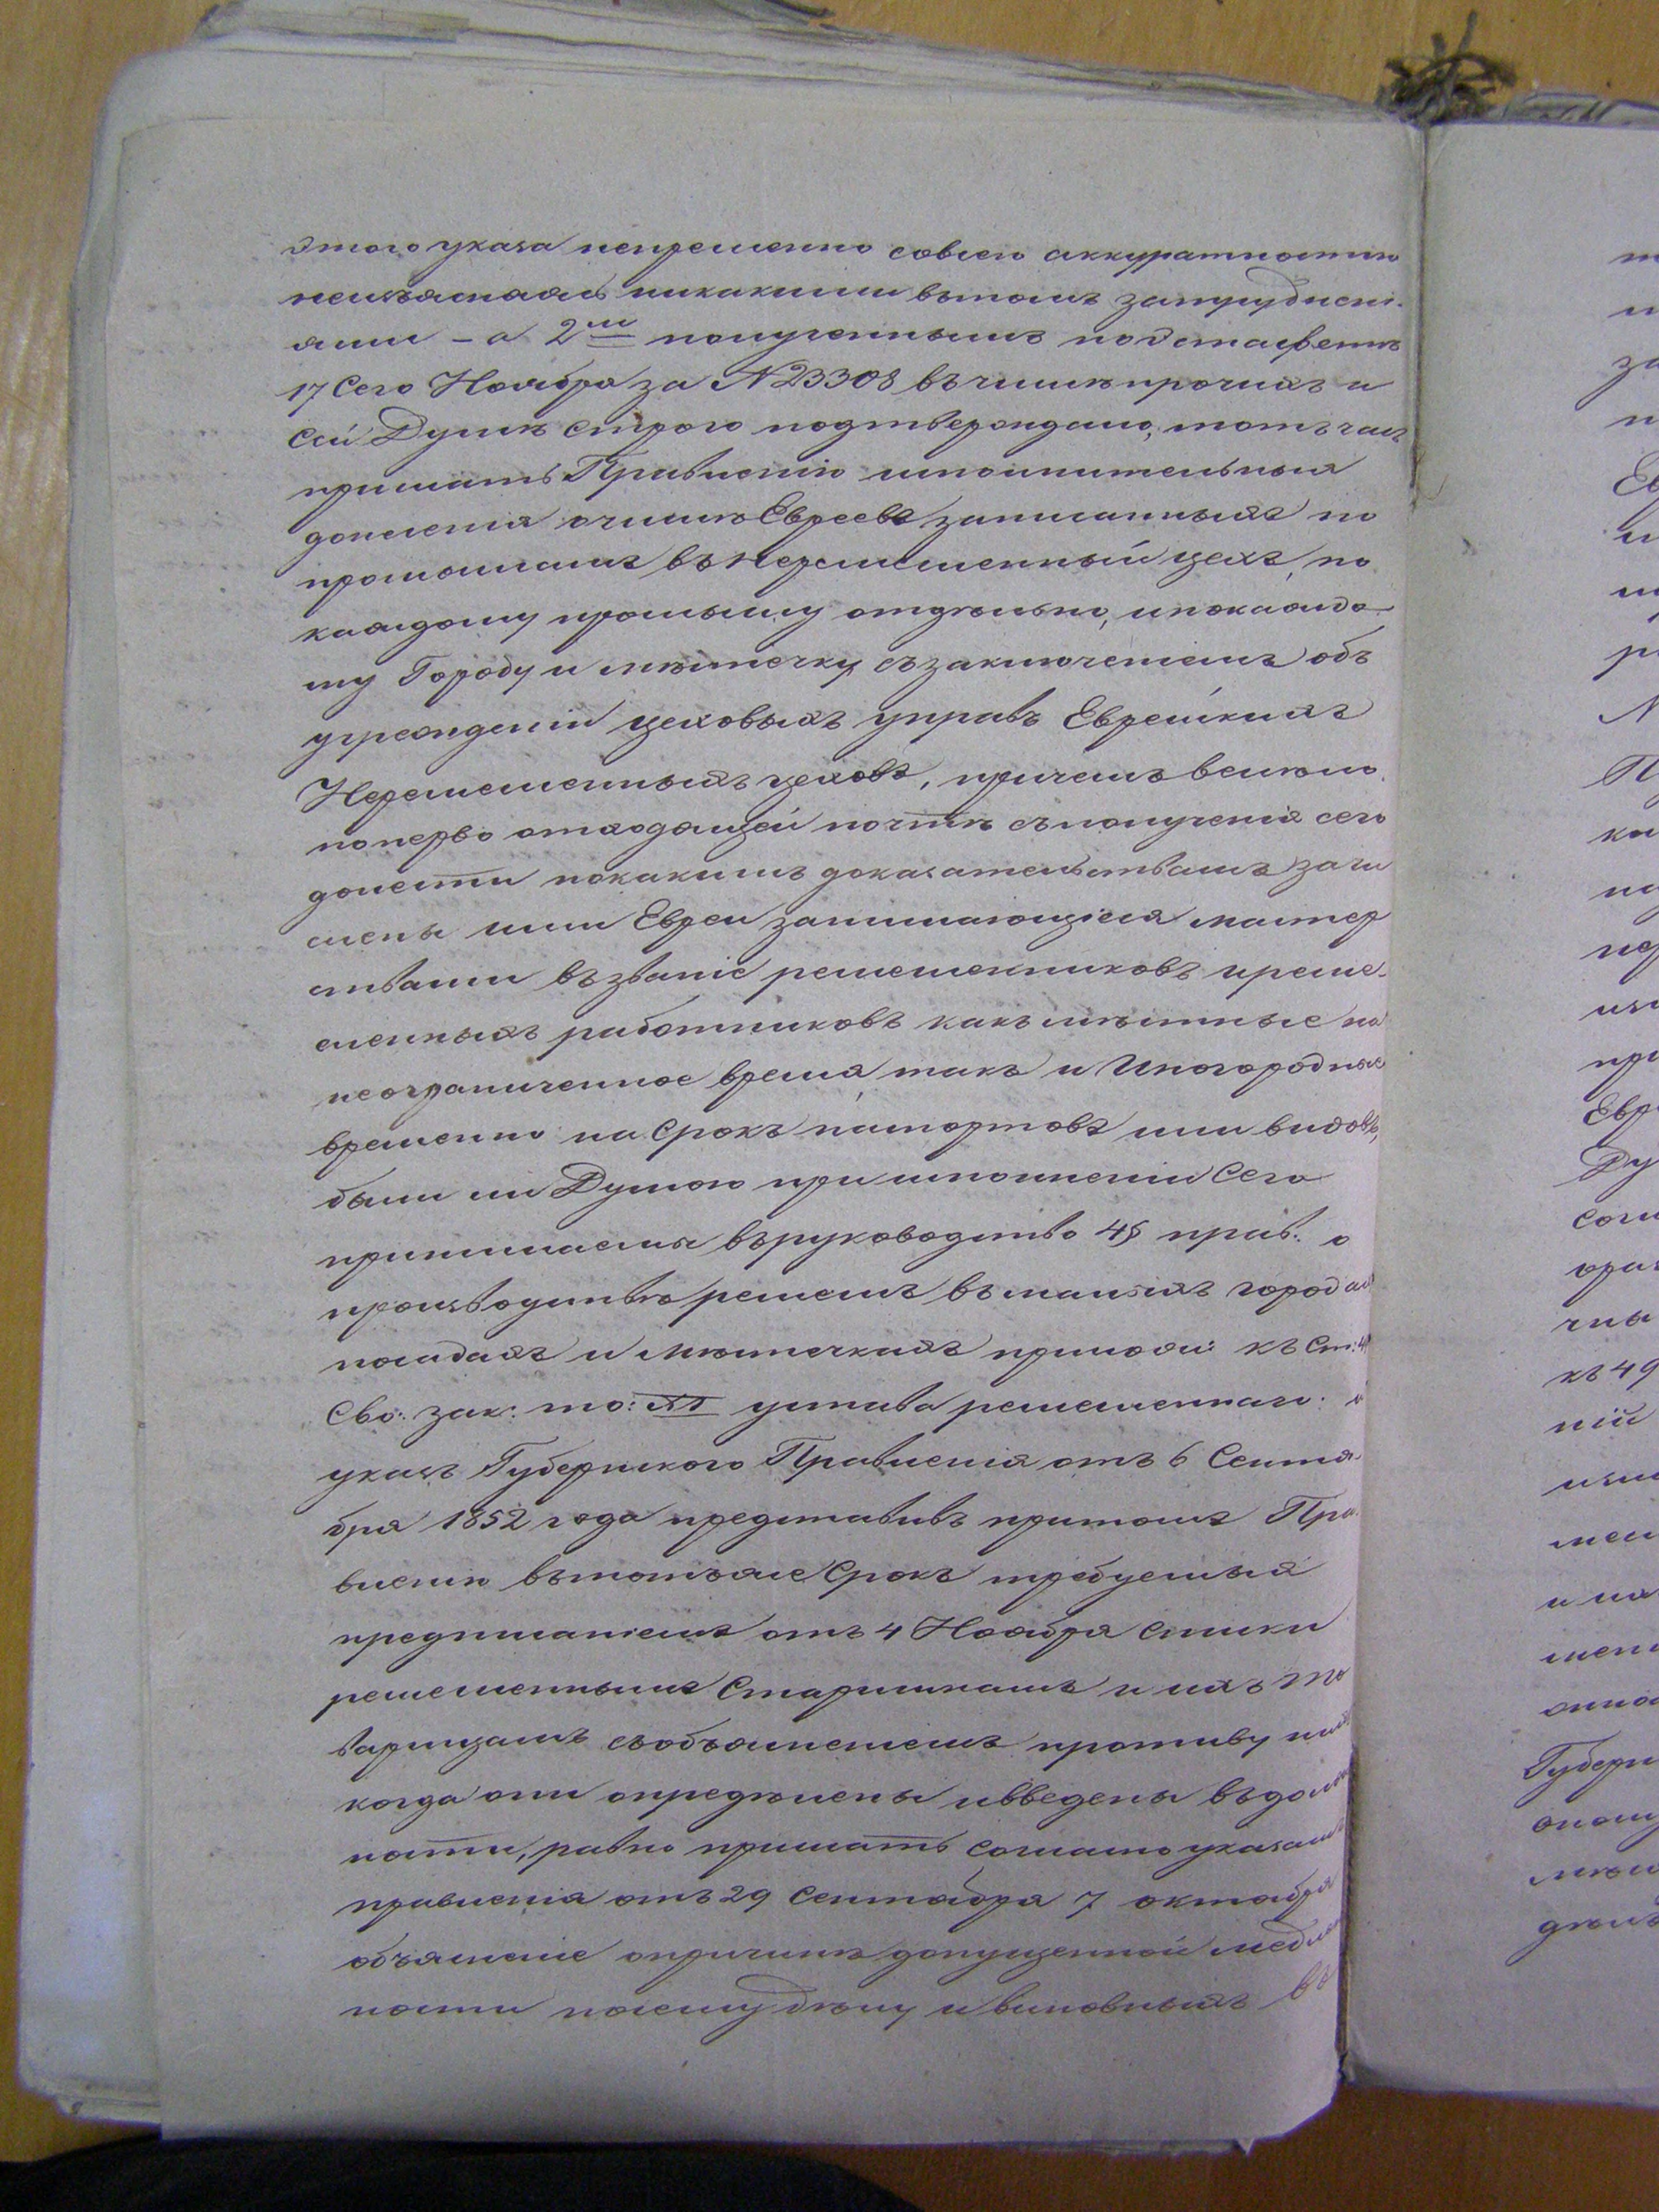 этого указа непременно совсею аккуратностію
неизъясняясь никакими вътомъ затрудненi-
ями – а 2мъ полученнымъ поэстафетѣ
17 Сего Ноября за №23308 въчислѣ прочихъ и
Сей Думѣ строго подтверждено, тотъчасъ
прислать Правленію исполнительныя
донесенія очислѣ Евреевъ записанныхъ по
промысламъ въ неремесленный цехъ, по
каждому промыслу отдѣльно, ипокаждо-
му Городу и мѣстечку съзаключеніемъ объ
учрежденіи цеховыхъ управъ Еврейскихъ
Неремесленныхъ цеховъ, причемъ велѣно
поперво отходящей почтѣ съполученія сего
донести покакимъ доказательствамъ зачи
слены ими Евреи занимающіеся мастер
ствами възваніе ремесленниковъ иреме-
сленныхъ работниковъ какъ мѣстные на
неограниченное время такъ и Иногородные
временно на срокъ паспортовъ или видовъ,
были ли Думою при исполненіи Сего
принимаемы въруководство 45 прав. о
производствѣ ремеслъ вмалыхъ городах
посадахъ и мѣстечкахъ прилож: къ Ст:
Сво: зак: то: XI устава ремесленнаго: и
указъ Губернского Правленія отъ 6 Сентя-
бря 1852 года представивъ притомъ Пра
вленію въ тотъже Срокъ требуемыя
предписаніемъ отъ 4 Ноября списки
ремесленнымъ Старшинамъ и ихъ то
варищамъ собъясненіемъ противу
когда они опредѣлены ивведены въдолж
ности, равно прислать согласно указамъ
правленія отъ 29 Сентября 7 октября
объясненіе опричинѣ допущенной медлен
ности посему дѣлу и виновныхъ въ